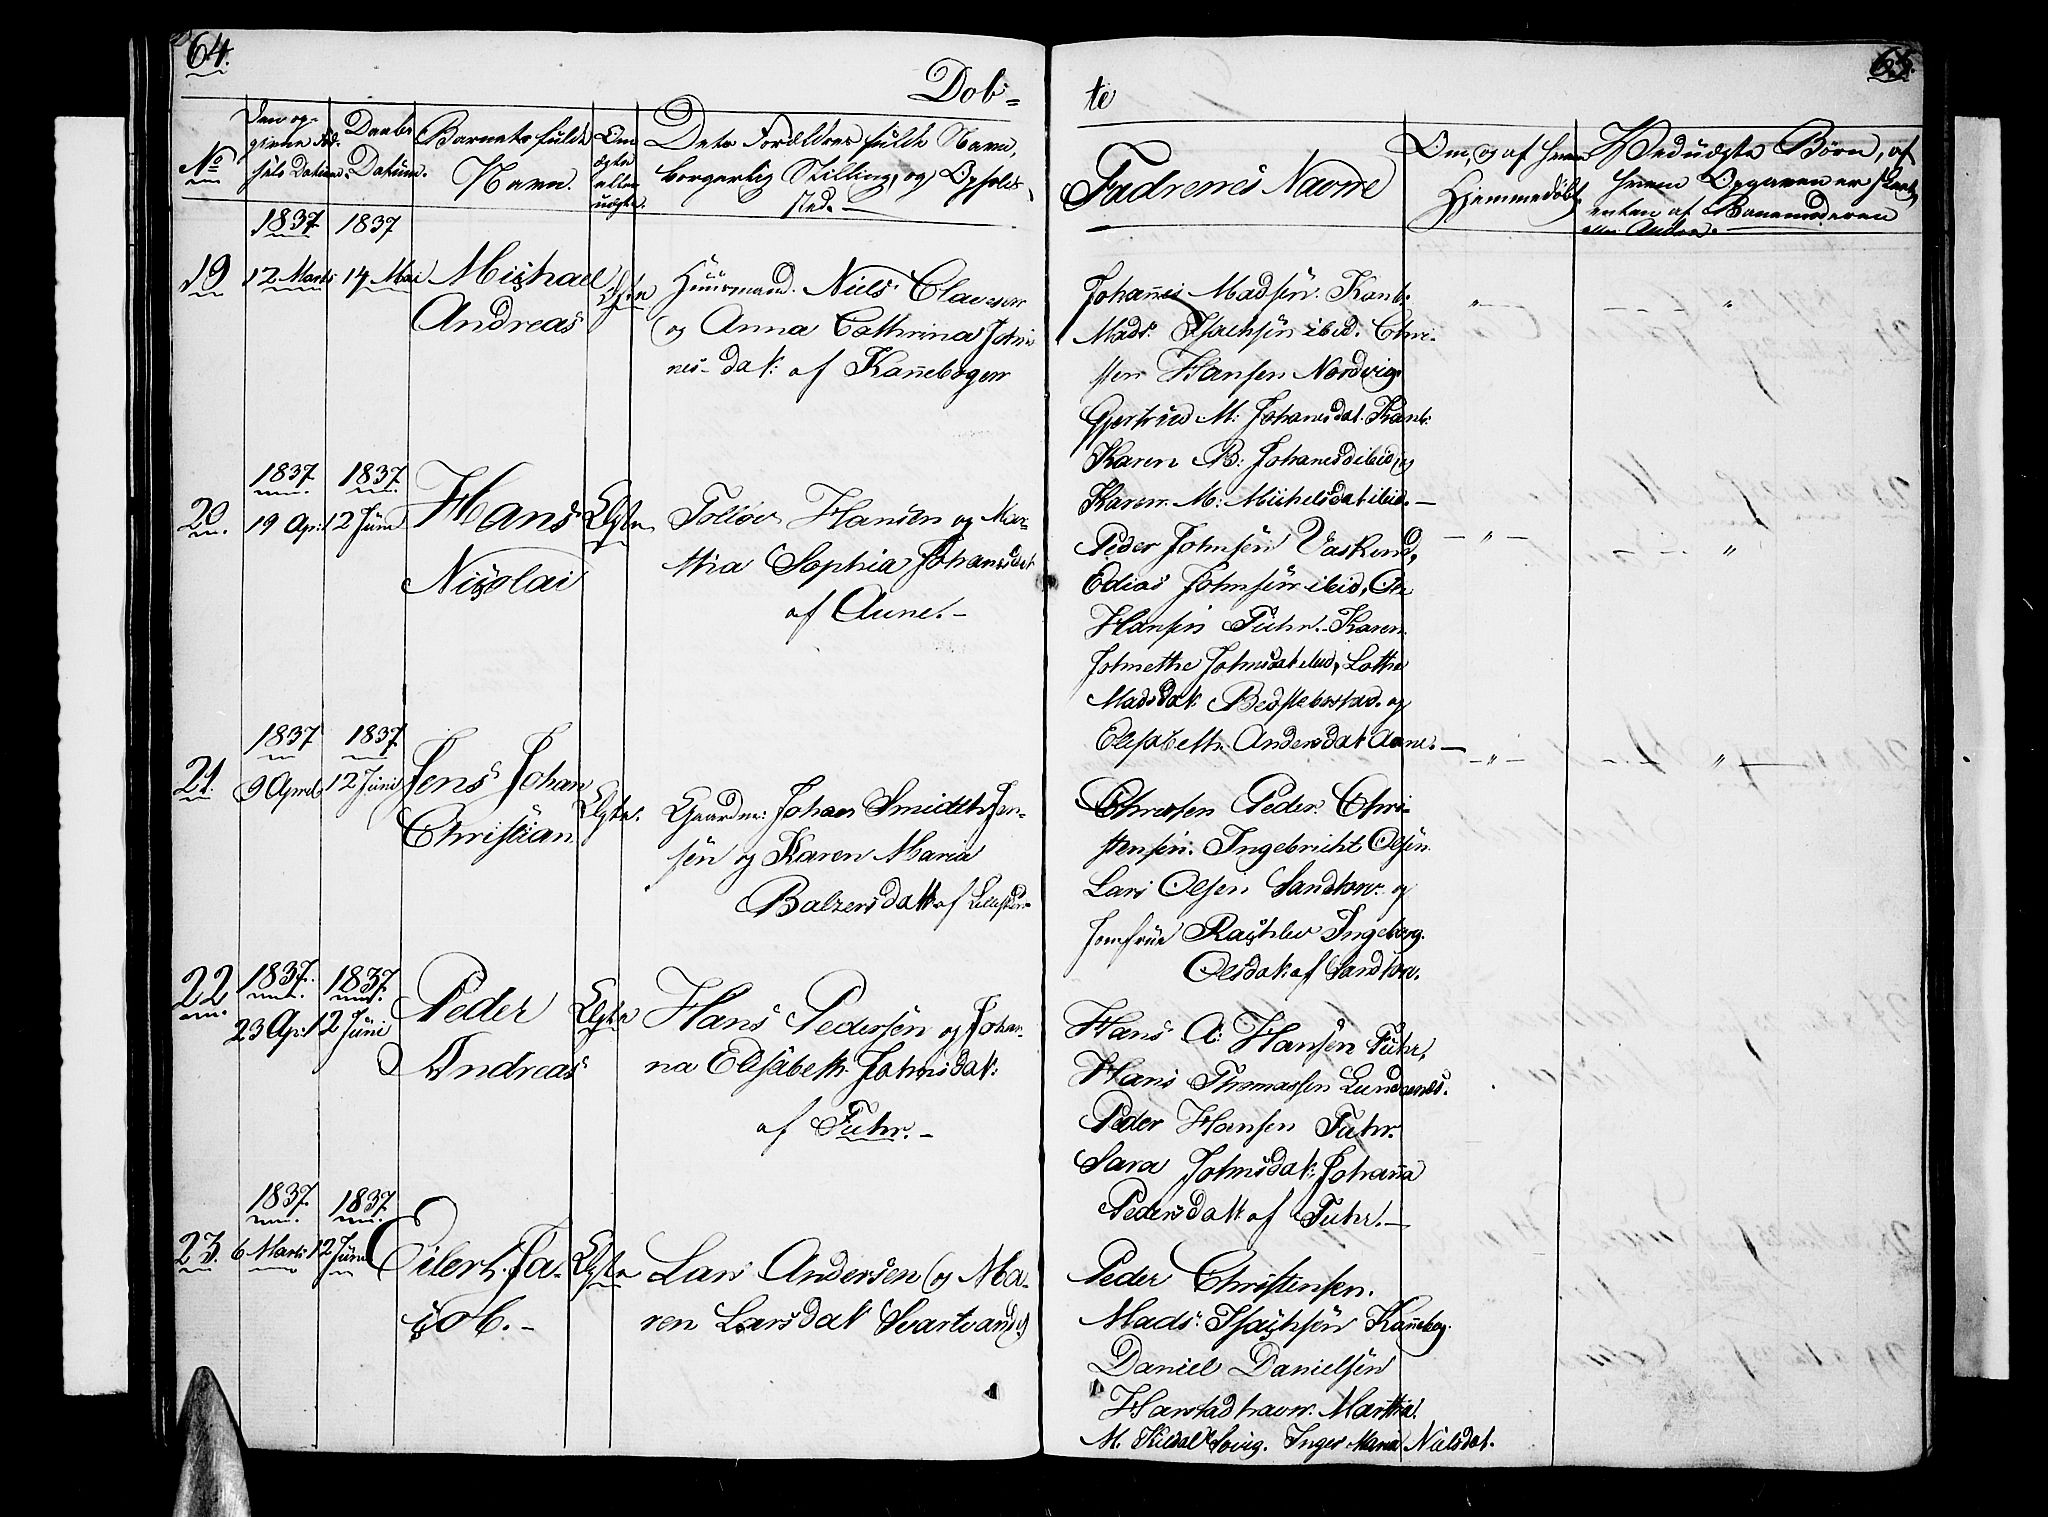 64.
65.
Döb=
te
No
Den op-
givne Föd-
sels Datum.
Daabs
Datum.
Barnets fulde
Navn.
Om
ægte
eller
uægte.
Dets Forældres fulde Navn,
borgerlig Stilling, og Opholds-
sted.
Faderenes Navne
Om, og af hvem
Hjemmedöbt.
Ved uægte Börn, af
hvem Opgaven er skeet,
enten af Barnemoderen
eller Andre.
1837 1837
19 12 Marts 14 Mai Michael
Andreas
Ægte
Huusmand. Niels Clausen
og Anna Cathrina Johan
nes-dat: af Kannebogen
Johannes Madsen Kanb.
Mads Isachsen ibid. Chri-
sten Hansen Nordvig
Gjertrud M: Johanesdat. Kanb.
Karen B: Johanesd ibid og
Karen M: Michelsdat ibid.—
1837 1837
20 19 Ap: 12 Juni Hans
Nicolai
Ægte
Tollöv Hansen og Mar-
tha Sophia Johansdat
af Aune.—
Peder Johnsen Vaskind,
Edias Johnsen ibid, Ole
Hansen Fuhr. Karen
Johnethe Johnsdat ibid, Lotha
Madsdat: Bedstebostad. og
Elisabeth Andersdat Aune.—
1837 1837
21. 9 April 12 Juni Jens Johan
Christian
Ægte.
Gaardm: Johan Smidth Jen-
sen og Karen Maria
Balzersdatt af
Christen Peder Chri-
stensen. Ingebricht Olsen
Lars Olsen Sandtorv. og
Jomfrue Rachlev Ingeborg.
Olsdat: af Sandtorv.
1837. 1837.
22 23 Ap: 12 Juni Peder
Andreas
Ægte
Hans Pedersen og Johan-
na Elisabeth Johnsdat:
af Fuhr.—
Hans A: Hansen Fuhr,
Hans Thomassen Lundenes.
Peder Hansen Fuhr.
Sara Johnsdat: Johanna
Pedersdatt af Fuhr.—
1837. 1837.
23. 6 Marts 12 Juni Eilert Ja-
cob.—
Ægte
Lars Andersen og Ma-
ren Larsdat Svartvand
Peder Christensen.
Mads Isachsen Kannebog.
Daniel Danielsen
Harstadhavn. Martha
M. Kildal Sörvig. Inger Maria Nielsdat.